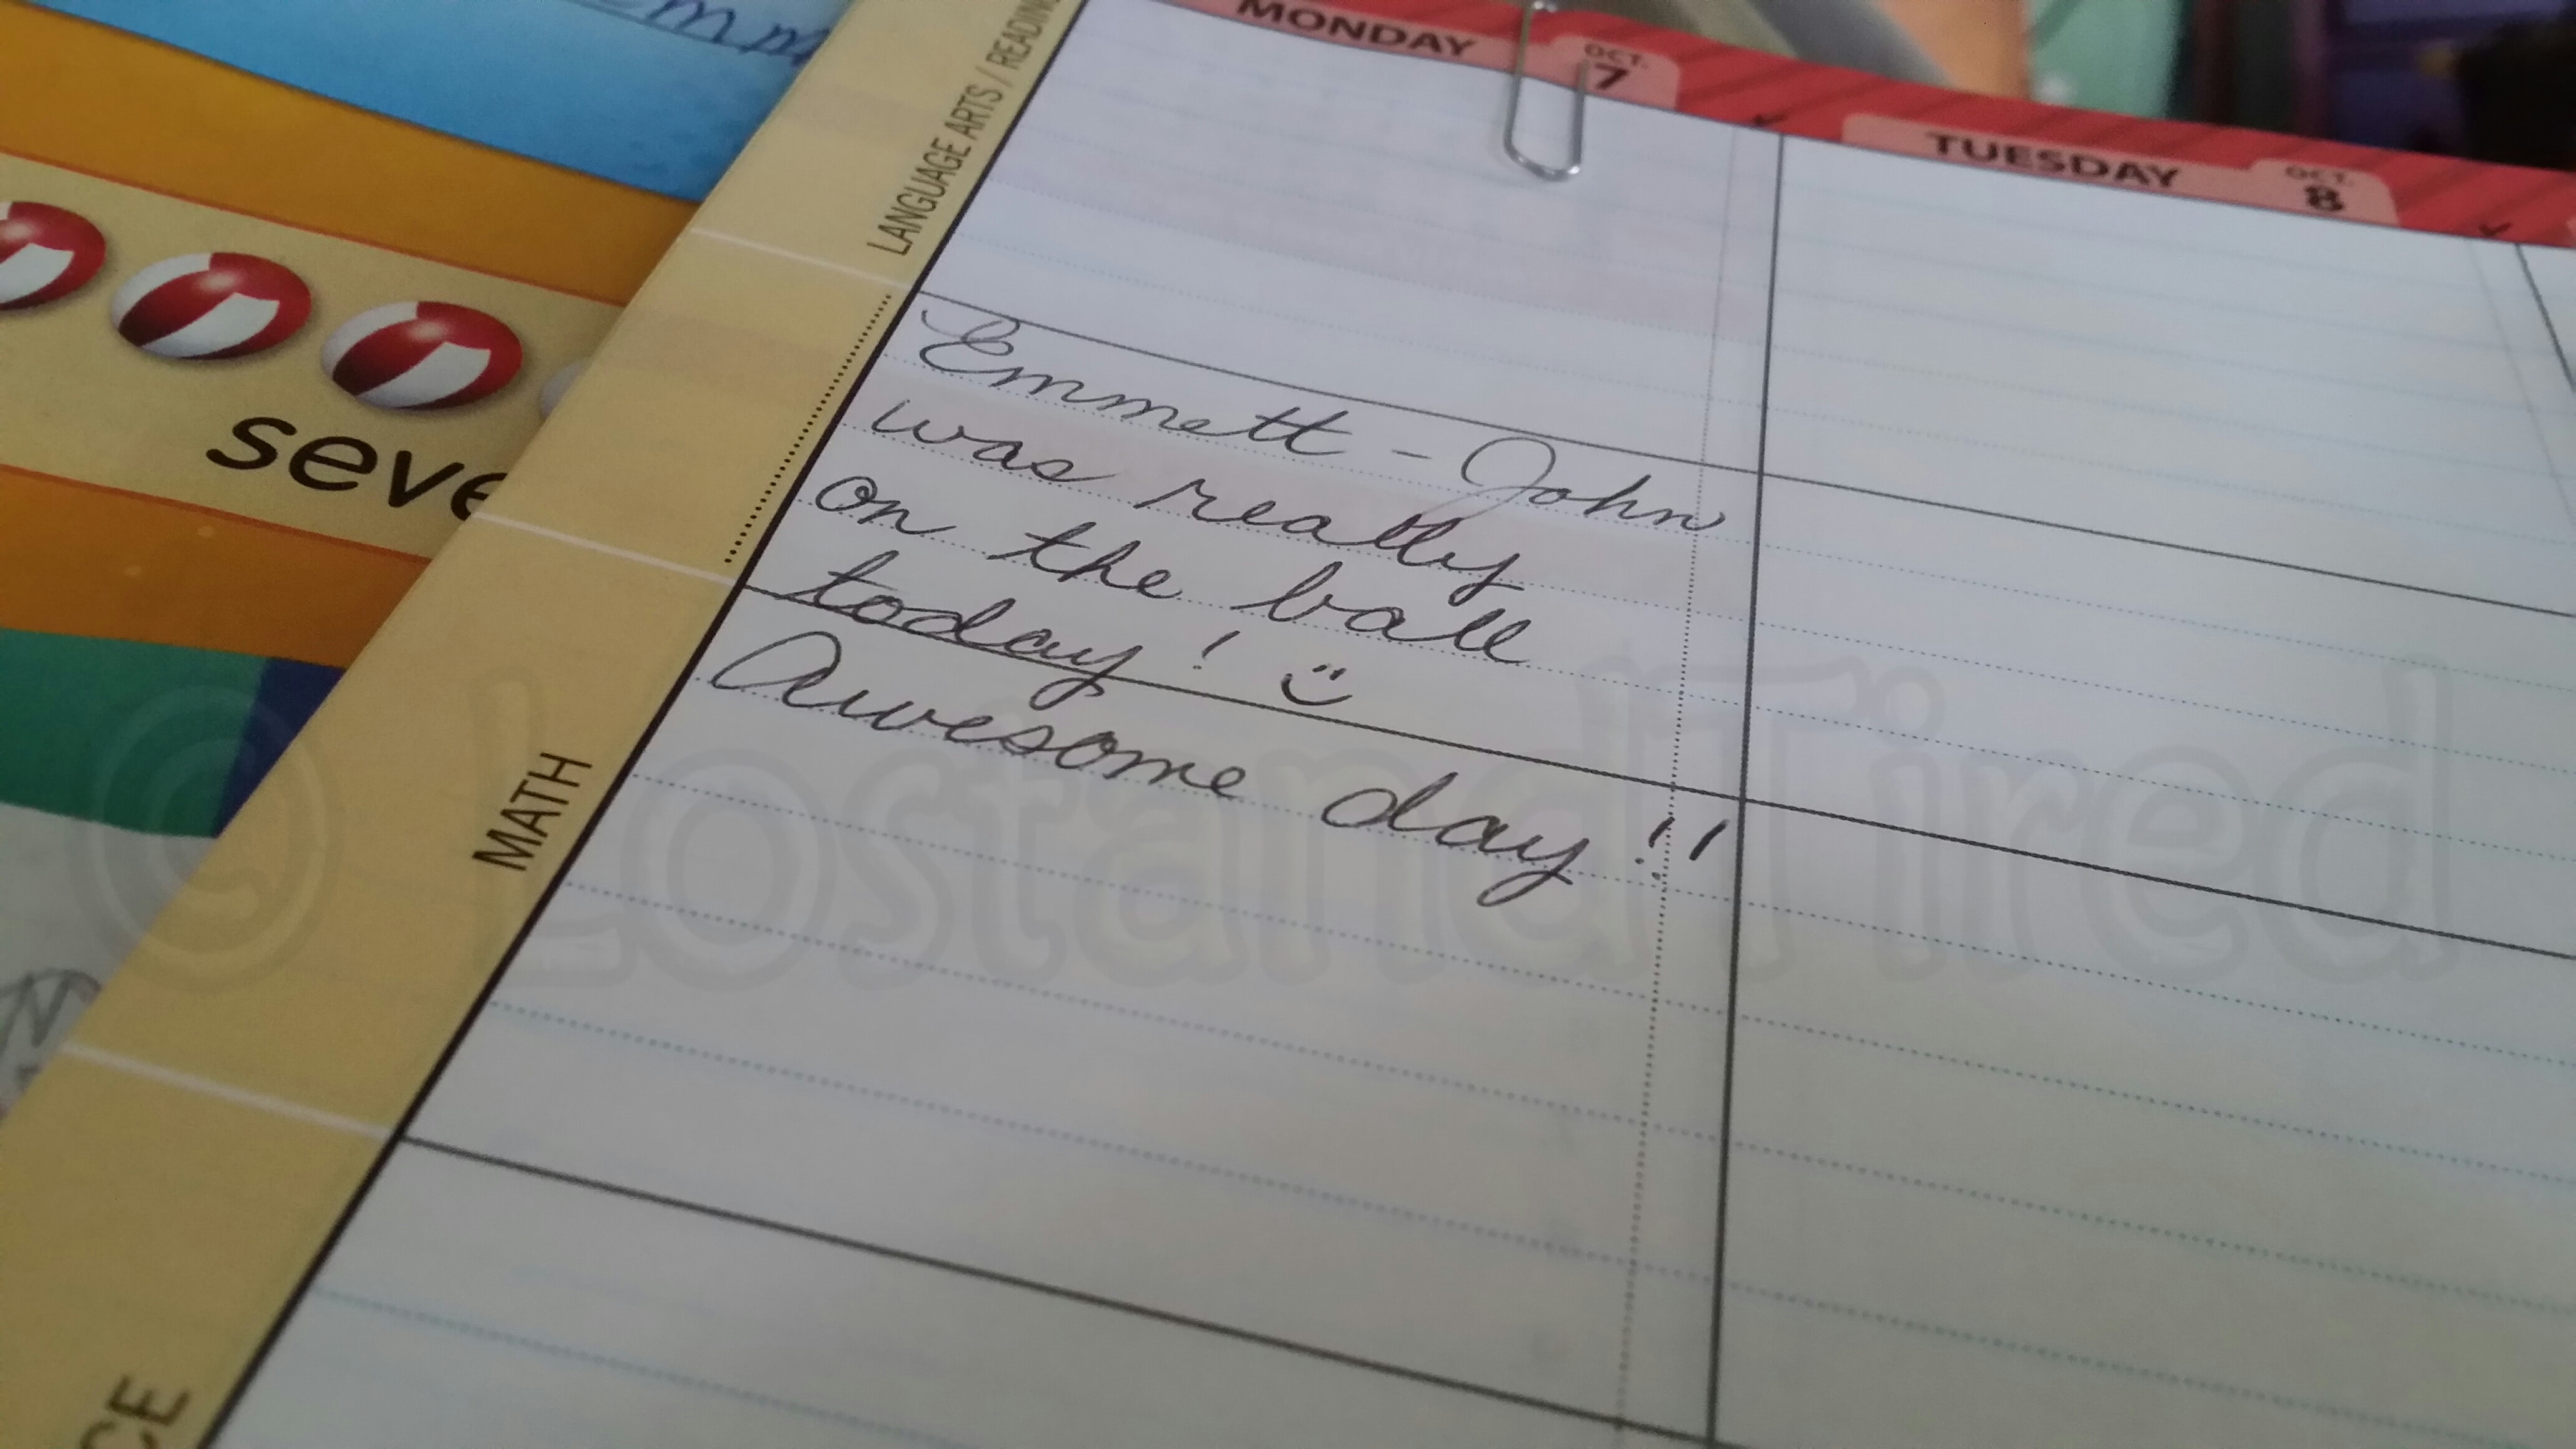 LANGUAGE ARTS / READING
MONDAY
OCT.
7
TUESDAY
OCT.
8
seve
Emmett - John
was really
on the ball
today!
Awesome day!!
MATH
CE
© LostandTired